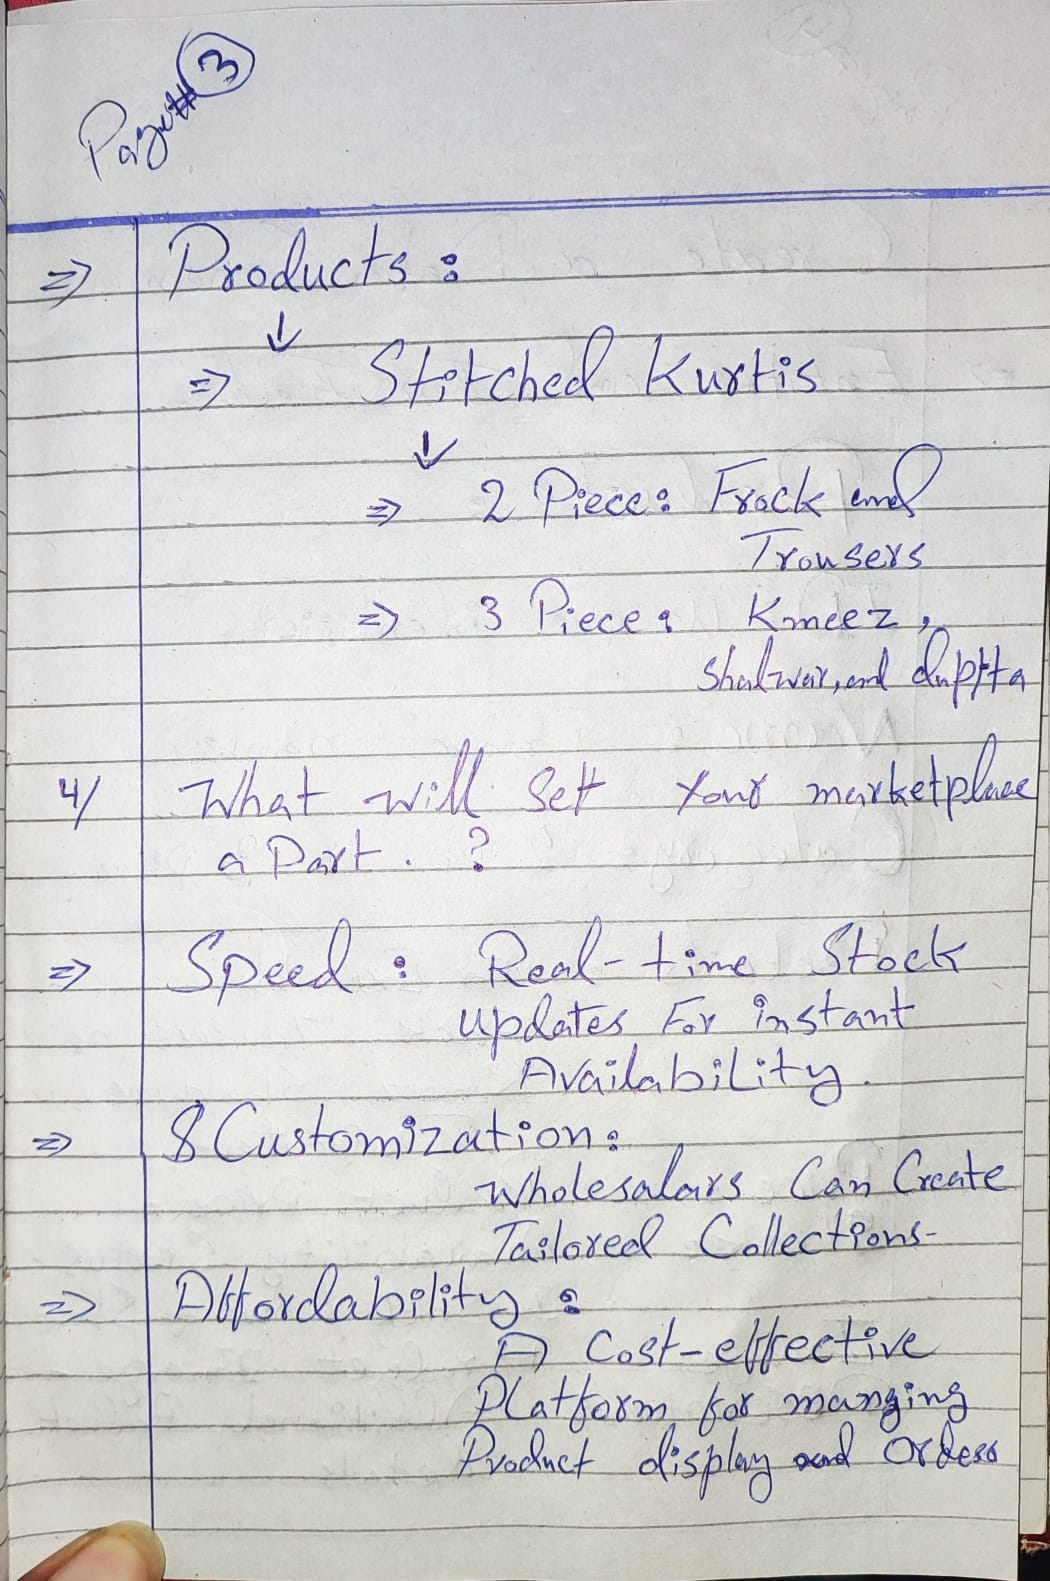 Page# 3
⇒ Products:
↓
⇒ Stitched Kurtis
↓
⇒ 2 Piece: Frock and
Trousers
⇒ 3 Piece: Kmeez,
Shalwar, and duptta
4/ What will Sett Your marketplace
a Part. ?
⇒ Speed: Real-time Stock
updates For instant
Availability.
⇒ Customization:
Wholesalars Can Create
Tailored Collections-
⇒ Affordability:
A Cost-effective
Platform for manging
Product display and Orders